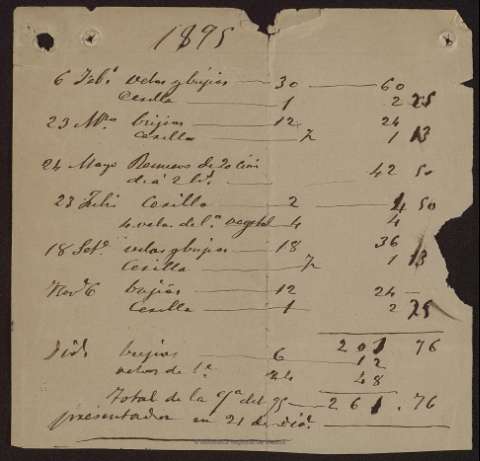 1895
6 Feb.º velas y bujias 30 60
Cerilla 1 2 25
23 Mzo bujias 12 24
Cerilla ½ 1 13
24 Mayo de 20 42 50
23 Julio Cerilla 2 4 50
4 velas del.ª vegetal 4 4
18 Set.e velas y bujias 18 36
Cerilla ½ 1 13
Nov.e 6 bujias 12 24 —
Cerilla 1 2 25
201 76
Dic.e bujias 6 12
velas de 1.ª 24 48
Total de la c.ta del 95 261.76
presentada en 21 de dic.e